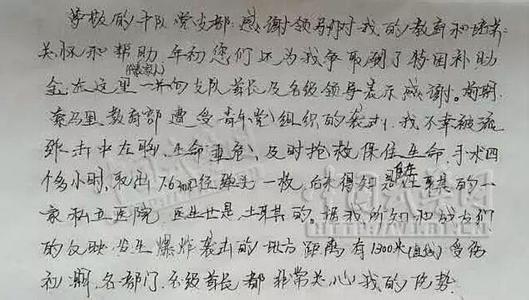 尊敬的斗队党支部：感谢领导对我的教育和培养
关怀和帮助 年初您们还为我争取到了特困补助
金，在这里一并向支队首长及各级领导表示感谢。前期
索马里教育部遭受青年党组织的袭击，我不幸被流
弹击中左胸，生命垂危，及时抢救，保住生命，手术四
个多小时，取出7.62口径弹头一枚，后来得知是在土耳其的一
家私立医院 医生也是土耳其的。据我所知和战友们
的反映 发生爆炸袭击的地方距离有1300米(直线) 受伤
初期，各部门、各级首长都非常关心我的伤势